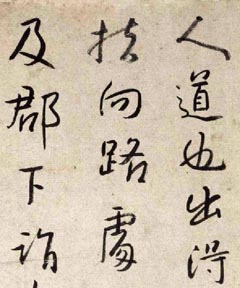 人道也出得
扶向路處
及郡下詣